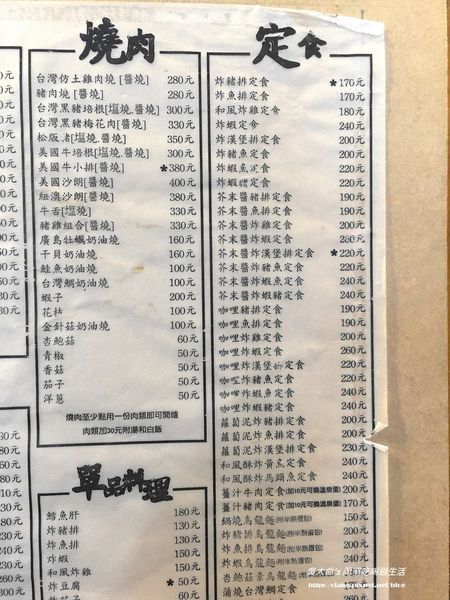 燒肉
台灣仿土雞肉燒[醬燒] 280元
豬肉燒[醬燒] 280元
台灣黑豬培根[塩燒.醬燒] 300元
台灣黑豬梅花肉[醬燒] 330元
松版渚[塩燒.醬燒] 350元
美國牛培根[塩燒.醬燒] 300元
美國牛小排[醬燒] *380元
美國沙朗[醬燒] 400元
紐澳沙朗[醬燒] 380元
牛舌[塩燒] 330元
豬雞組合[醬燒] 330元
廣島牡蠣奶油燒 160元
干貝奶油燒 160元
鮭魚奶油燒 100元
台灣鯛奶油燒 100元
蝦子 200元
花枝 100元
金針菇奶油燒 100元
杏鮑菇 60元
青椒 50元
香菇 50元
茄子 50元
洋蔥 50元
燒肉至少點用一份肉類即可開爐
肉類加30元附湯和白飯
單品料理
鱈魚肝 180元
炸豬排 130元
炸魚排 130元
炸蝦 150元
和風炸雞 150元
炸豆腐 *50元
定食
炸豬排定食 *170元
炸魚排定食 170元
和風炸雞定食 180元
炸蝦定食 240元
炸漢堡排定食 200元
炸豬魚定食 200元
炸蝦魚定食 220元
炸蝦豬定食 220元
芥末醬豬排定食 190元
芥末醬魚排定食 190元
芥末醬炸雞定食 200元
芥末醬炸蝦定食 260元
芥末醬炸漢堡排定食 *220元
芥末醬炸豬魚定食 220元
芥末醬炸蝦魚定食 240元
芥末醬炸蝦豬定食 240元
咖哩豬排定食 190元
咖哩魚排定食 190元
咖哩炸雞定食 200元
咖哩炸蝦定食 260元
咖哩炸漢堡排定食 220元
咖哩炸豬魚定食 220元
咖哩炸蝦魚定食 240元
咖哩炸蝦豬定食 240元
蘿蔔泥炸豬排定食 200元
蘿蔔泥炸魚排定食 200元
蘿蔔泥炸漢堡排定食 230元
和風酥炸黃魚定食 240元
和風酥炸馬頭魚定食 240元
薑汁牛肉定食(加10元可換溫泉蛋) 200元
薑汁豬肉定食(加10元可換溫泉蛋) 170元
鍋燒烏龍麵(附半熟蛋包) 150元
炸豬排烏龍麵(附半熟蛋包) 200元
炸魚排烏龍麵(附半熟蛋包)
炸蝦烏龍麵(附半熟蛋包)
杏鮑菇素烏龍麵(附半熟蛋包)
蒲燒台灣鯛定食